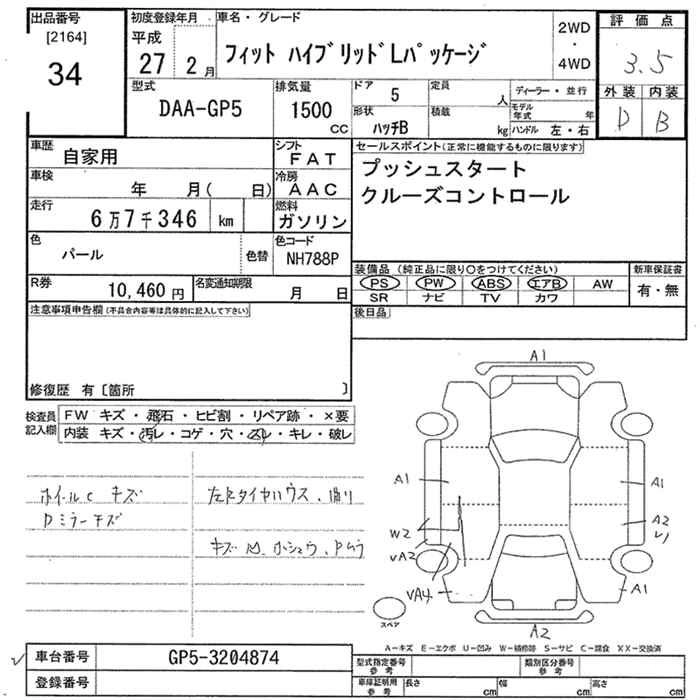 出品番号
[2164]
34
初度登録年月
平成
27 2月
車名・グレード
フィット ハイブリッドLパッケージ
2WD
・
4WD
評価点
3.5
外装 内装
D B
型式
DAA-GP5
排気量
1500
CC
ドア
5
形状
ハッチB
定員
人
積載
kg
ディーラー・並行
モデル年式 年
ハンドル 左・右
車歴
自家用
シフト
FAT
車検
年 月( 日)
冷房
AAC
走行
6万7千346 km
燃料
ガソリン
色
パール
色替
色コード
NH788P
R券
10,460円
名変通知期限
月 日
セールスポイント(正常に機能するものに限ります)
プッシュスタート
クルーズコントロール
装備品 (純正品に限り○をつけてください)
PS PW ABS エアB AW
SR ナビ TV カワ
新車保証書
有・無
後日品
注意事項申告欄(不具合内容等は具体的に記入して下さい)
修復歴 有〔箇所 〕
検査員記入欄
FW キズ・飛石・ヒビ割・リペア跡・×要
内装 キズ・汚レ・コゲ・穴・スレ・キレ・破レ
ホイールC キズ
Dミラーキズ
キズ
A1
A1
A1
A2
W2
VA2
VA4
A1
スペア
A2
A-キズ E-エクボ U-凹み W-補修跡 S-サビ C-腐食 XX-交換済
車台番号 GP5-3204874
登録番号
型式指定番号
参考
類別区分番号
参考
車庫証明用
参考
長さ cm 幅 cm 高さ cm